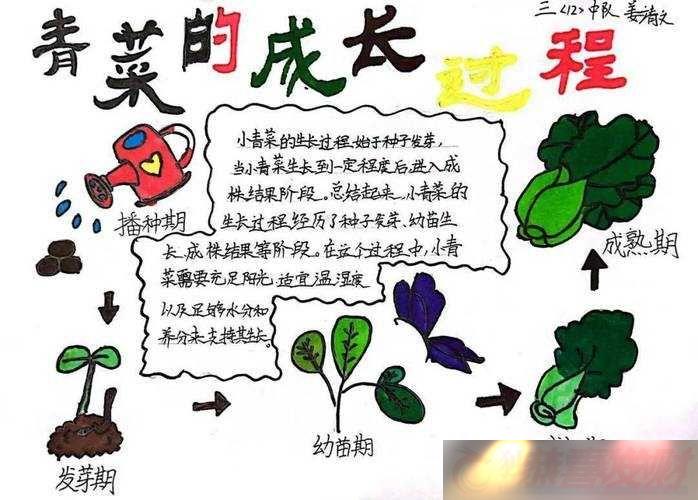 青菜的成长过程
三〈12〉中队 姜清文
小青菜的生长过程始于种子发芽,
当小青菜生长到一定程度后,进入成
株结果阶段。总结起来,小青菜的
生长过程经历了种子发芽、幼苗生
长、成株结果等阶段。在这个过程中,小青
菜需要充足阳光、适宜温湿度
以及足够水分和
养分来支持其生长。
播种期
发芽期
幼苗期
成熟期